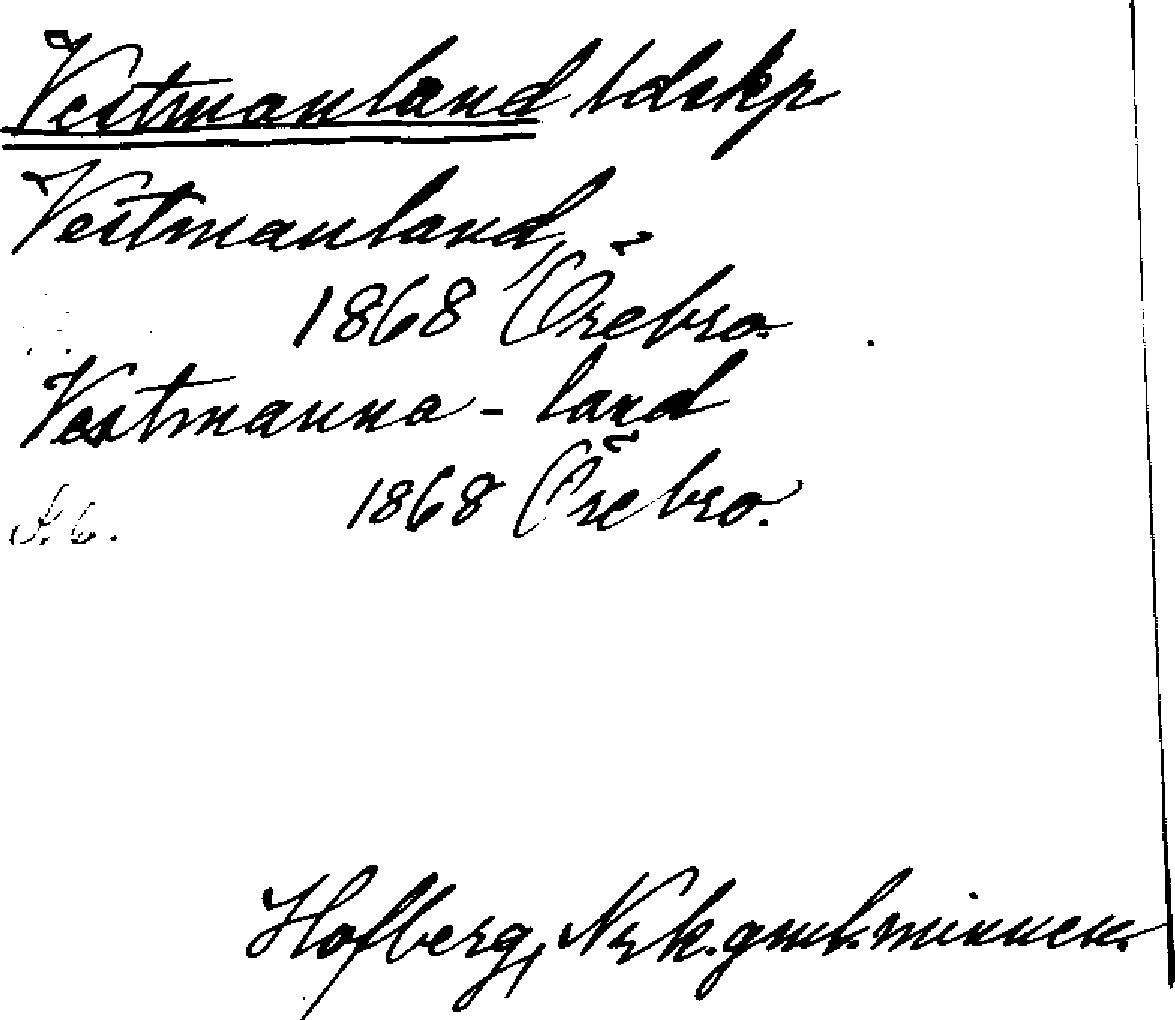 Vestmanland ldskp
Vestmanland,
1868 Örebro.
Vestmanna-land
S. 6. 1868 Örebro.
Hofberg, Nerk. gml. minnen.